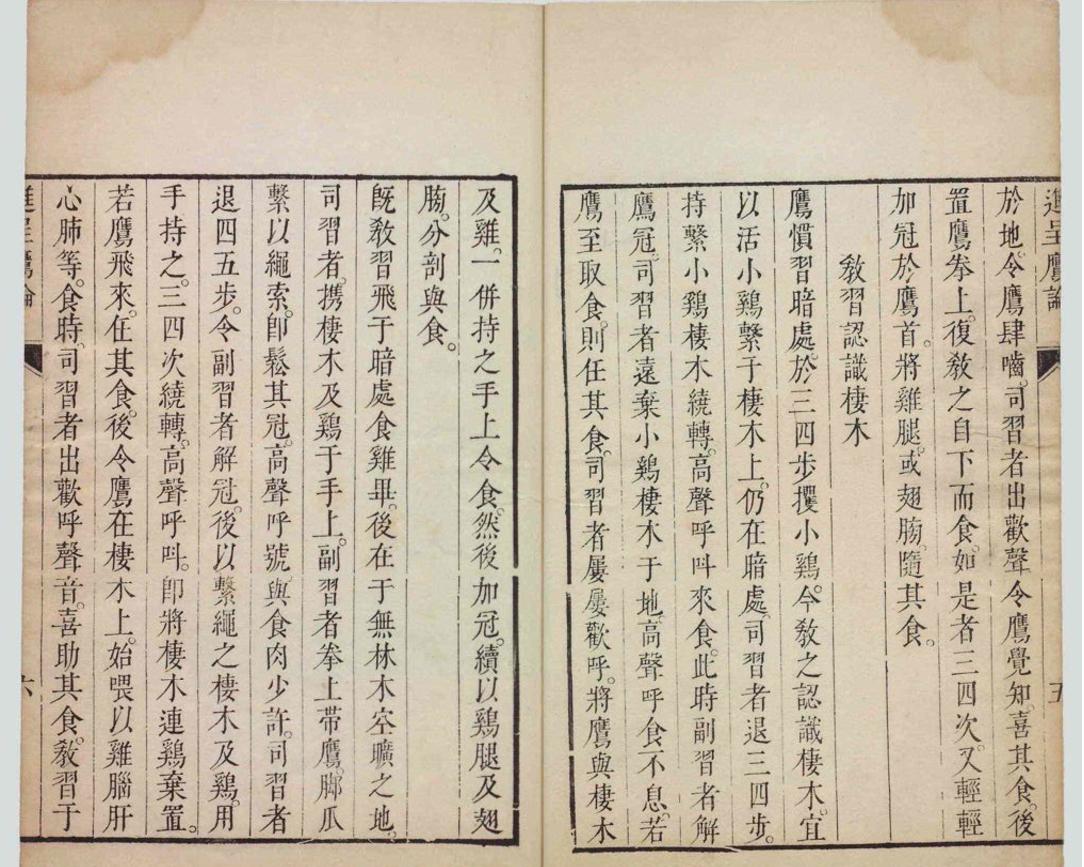 進呈鷹論
五
於地。令鷹肆嚙。司習者出歡聲令鷹覺知。喜其食。後
置鷹拳上。復教之自下而食。如是者三四次。又輕輕
加冠於鷹首。將雞腿。或翅膀。隨其食。
教習認識棲木
鷹慣習暗處。於三四步攫小鷄。今教之認識棲木。宜
以活小鷄繫于棲木上。仍在暗處。司習者退三四步。
持繫小鷄棲木繞轉。高聲呼呌來食。此時副習者解
鷹冠。司習者遠棄小鷄棲木于地。高聲呼食不息。若
鷹至取食。則任其食。司習者屢屢歡呼。將鷹與棲木
及雞。一併持之手上令食。然後加冠。續以鷄腿及翅
膀。分剖與食。
既教習飛于暗處食雞畢。後在于無林木空曠之地。
司習者。携棲木及鷄于手上。副習者拳上帶鷹。脚爪
繫以繩索。卽鬆其冠。高聲呼號。與食肉少許。司習者
退四五步。令副習者解冠。後以繫繩之棲木及鷄。用
手持之。三四次繞轉。高聲呼呌。卽將棲木連鷄棄置。
若鷹飛來。任其食。後令鷹在棲木上。始喂以雞腦肝
心肺等。食時。司習者出歡呼聲音。喜助其食。教習于
進呈鷹論
六